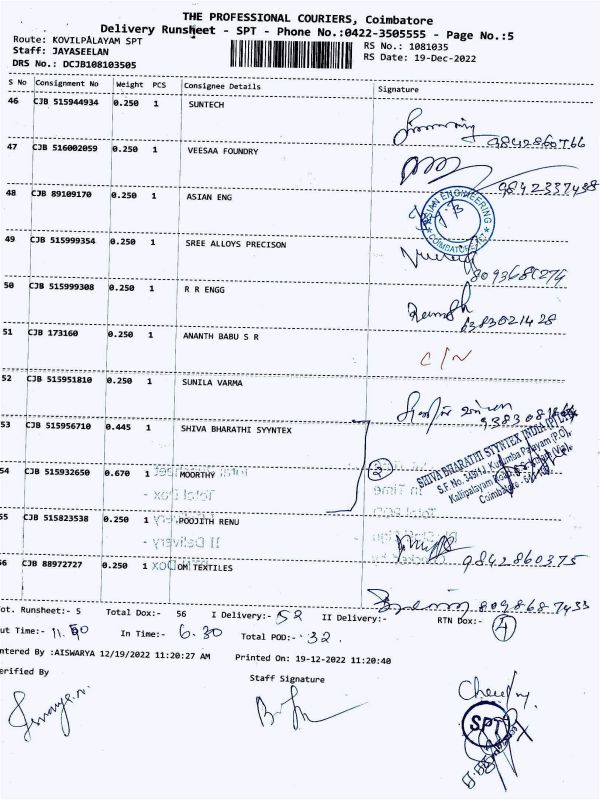 THE PROFESSIONAL COURIERS, Coimbatore
Delivery Runsheet - SPT - Phone No.:0422-3505555 - Page No.:5
Route: KOVILPALAYAM SPT
RS No.: 1081035
Staff: JAYASEELAN
RS Date: 19-Dec-2022
DRS No.: DCJB108103505
S No Consignment No Weight PCS Consignee Details Signature
46 CJB 515944934 0.250 1 SUNTECH
9842860766
47 CJB 516002059 0.250 1 VEESAA FOUNDRY
9842337498
48 CJB 89109170 0.250 1 ASIAN ENG
ASIAN ENGINEERING
49 CJB 515999354 0.250 1 SREE ALLOYS PRECISON
50 CJB 515999308 0.250 1 R R ENGG
6383021428
51 CJB 173160 0.250 1 ANANTH BABU S R
C/N
52 CJB 515951810 0.250 1 SUNILA VARMA
53 CJB 515956710 0.445 1 SHIVA BHARATHI SYYNTEX
SHIVA BHARATHI SYNTEX INDIA (P) LTD.
54 CJB 515932650 0.670 1 MOORTHY
2
55 CJB 515823538 0.250 1 POOJITH RENU
9842860375
56 CJB 88972727 0.250 1 OM TEXTILES
8098687433
Tot. Runsheet:- 5 Total Dox:- 56 I Delivery:- 52 II Delivery:- RTN Dox:- 4
Out Time:- 11.50 In Time:- 6.30 Total POD:- 32.
Entered By :AISWARYA 12/19/2022 11:20:27 AM Printed On: 19-12-2022 11:20:40
Verified By
Staff Signature
SPT